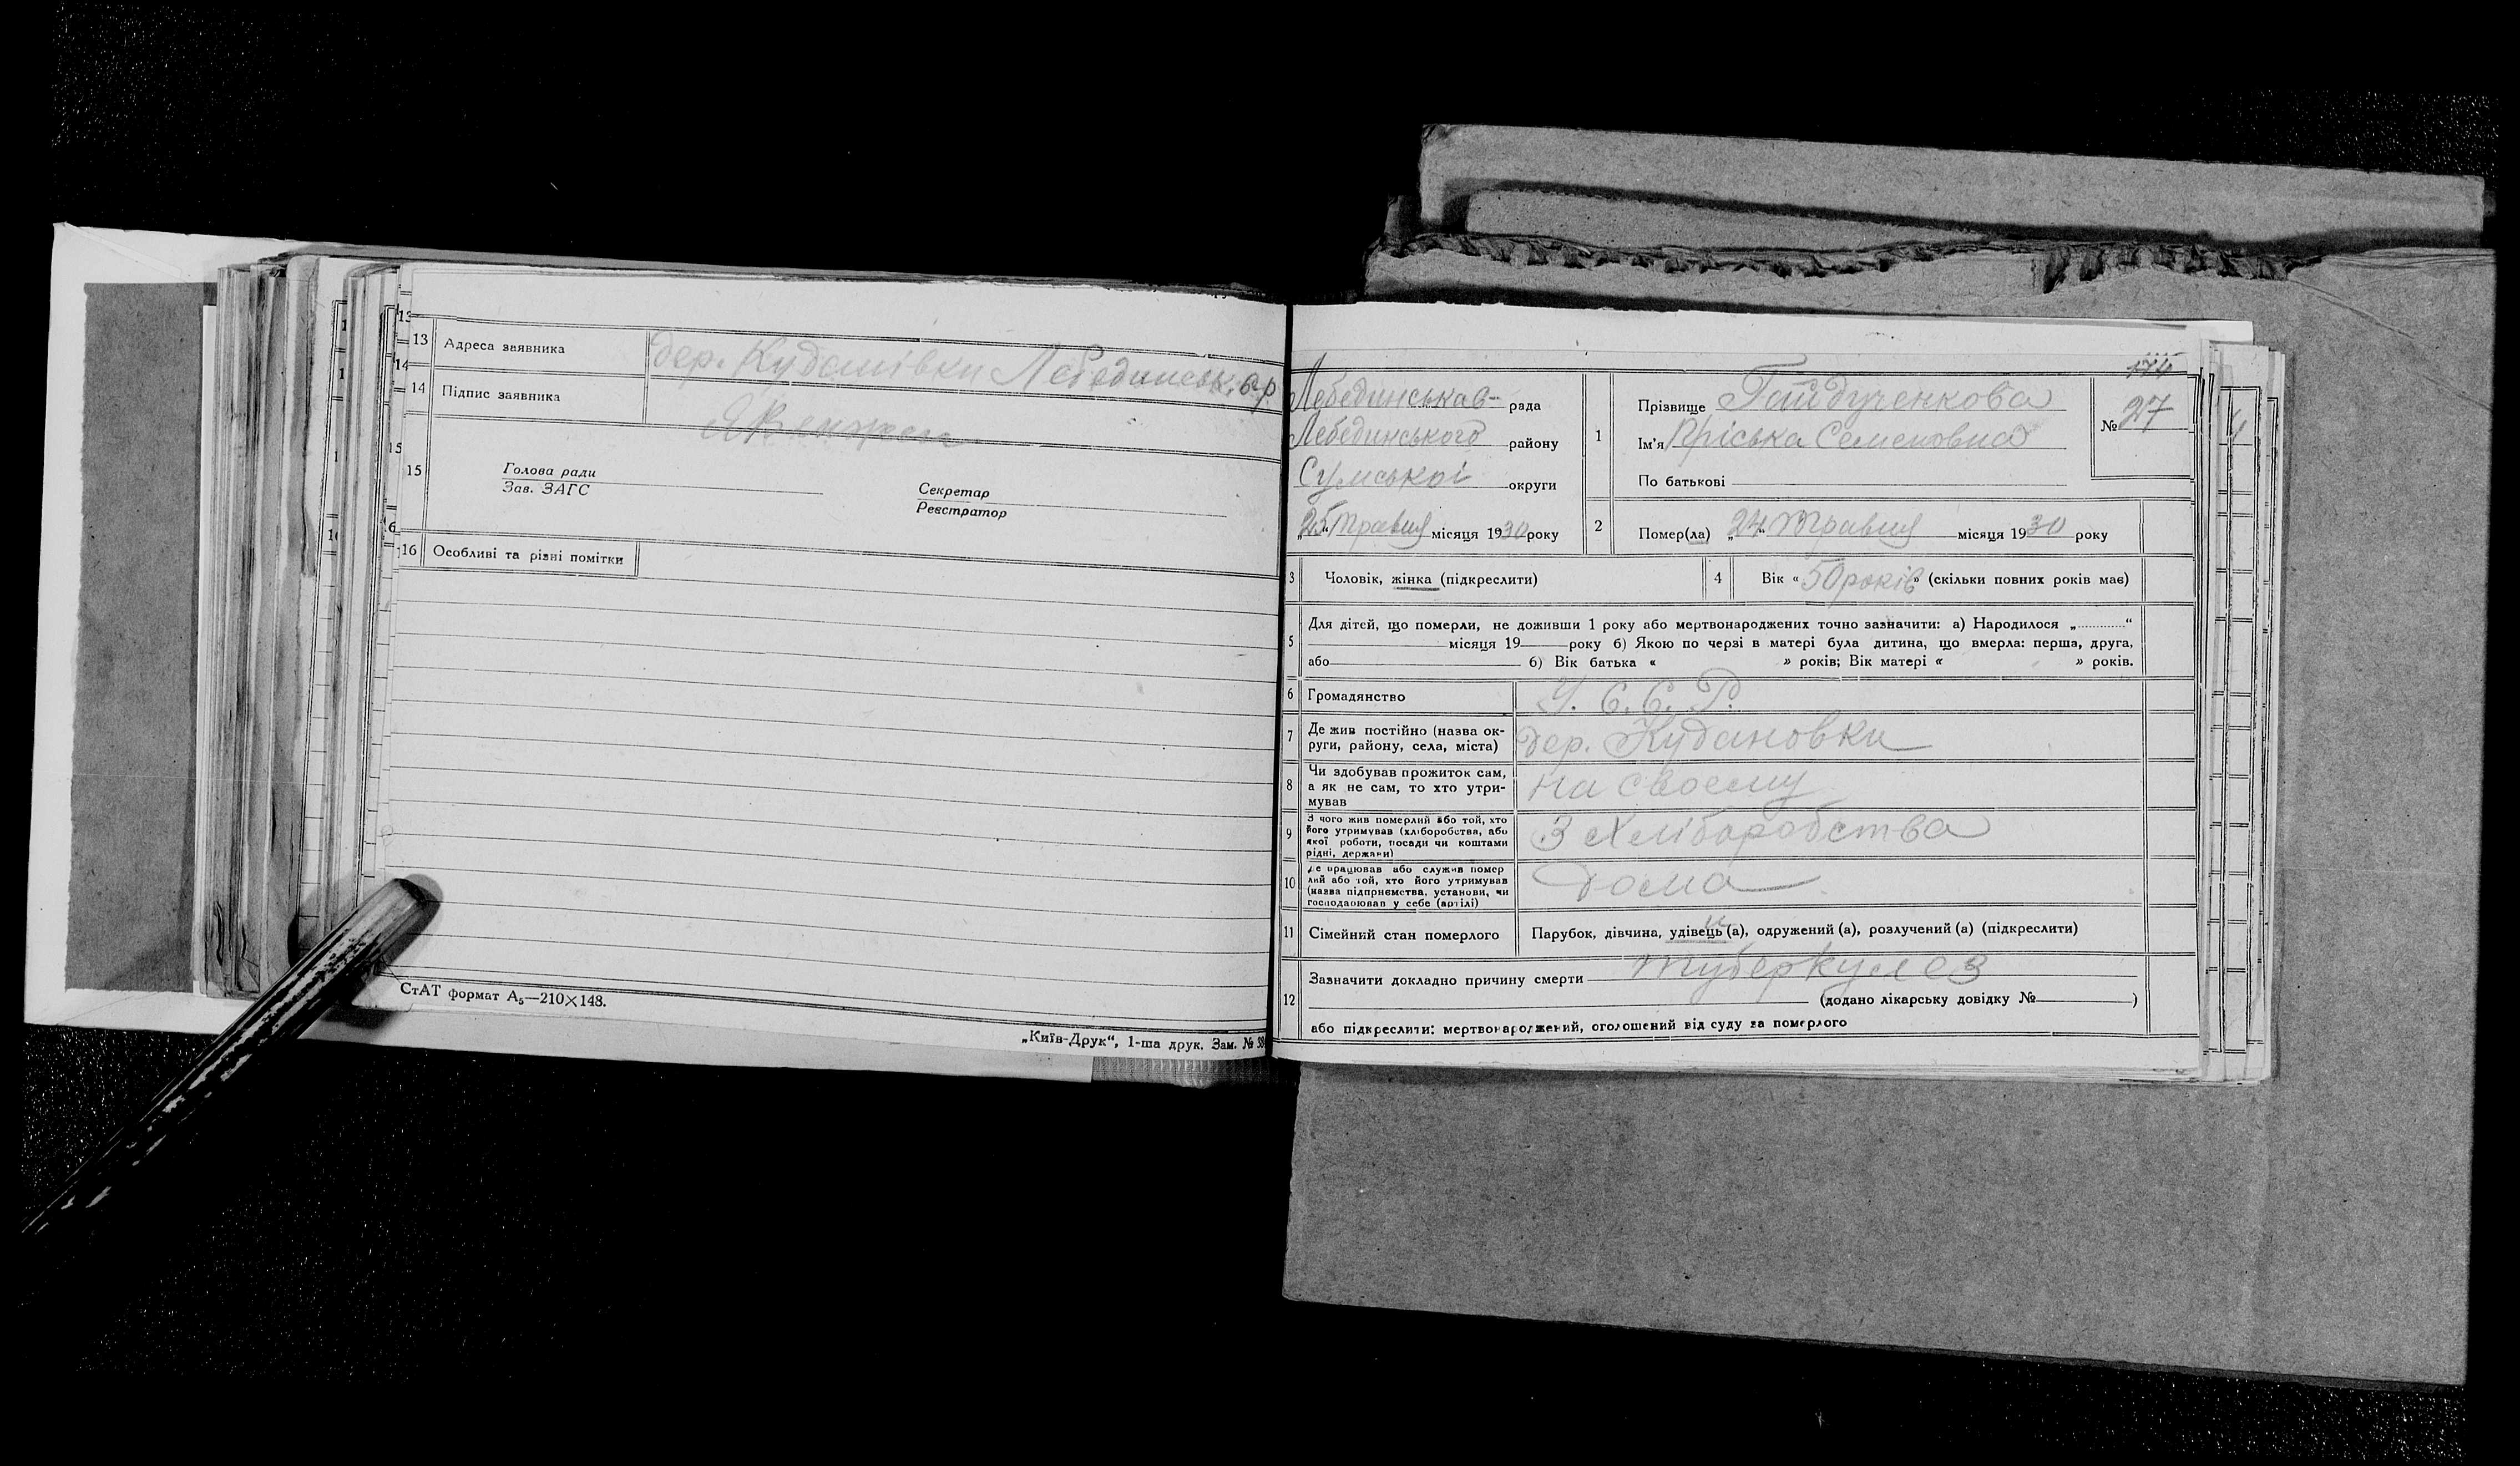 13 Адреса заявника дер. Куданівки Лебединськ. с-р
14 Підпис заявника
15 Голова ради
Зав. ЗАГС
Секретар
Реєстратор
16 Особливі та різні помітки
СтАТ формат А₅—210×148.
„Київ-Друк“, 1-ша друк. Зам. №
174
Лебединська рада
Лебединського району
Сумської округи
„25“ травня місяця 1930 року
1 Прізвище Гайдученкова
Ім'я Пріська Семеновна
По батькові
№ 27
2 Помер(ла) „24“ травня місяця 1930 року
3 Чоловік, жінка (підкреслити)
4 Вік «50 років» (скільки повних років має)
5 Для дітей, що померли, не доживши 1 року або мертвонароджених точно зазначити: а) Народилося „............“
місяця 19 року б) Якою по черзі в матері була дитина, що вмерла: перша, друга,
або б) Вік батька « » років; Вік матері « » років.
6 Громадянство У. С. С. Р.
7 Де жив постійно (назва ок-
руги, району, села, міста) дер. Кудановки
8 Чи здобував прожиток сам,
а як не сам, то хто утри-
мував на своему
9 З чого жив померлий або той, хто
його утримував (хліборобства, або
якої роботи, посади чи коштами
рідні, держави) З хліборобства
10 Де працював або служив помер
лий або той, хто його утримував
(назва підприємства, установи, чи
господарював у себе (артілі) дома
11 Сімейний стан померлого Парубок, дівчина, удівець (а), одружений (а), розлучений (а) (підкреслити)
12 Зазначити докладно причину смерти туберкулез
(додано лікарську довідку № )
або підкреслити: мертвонароджений, оголошений від суду за померлого